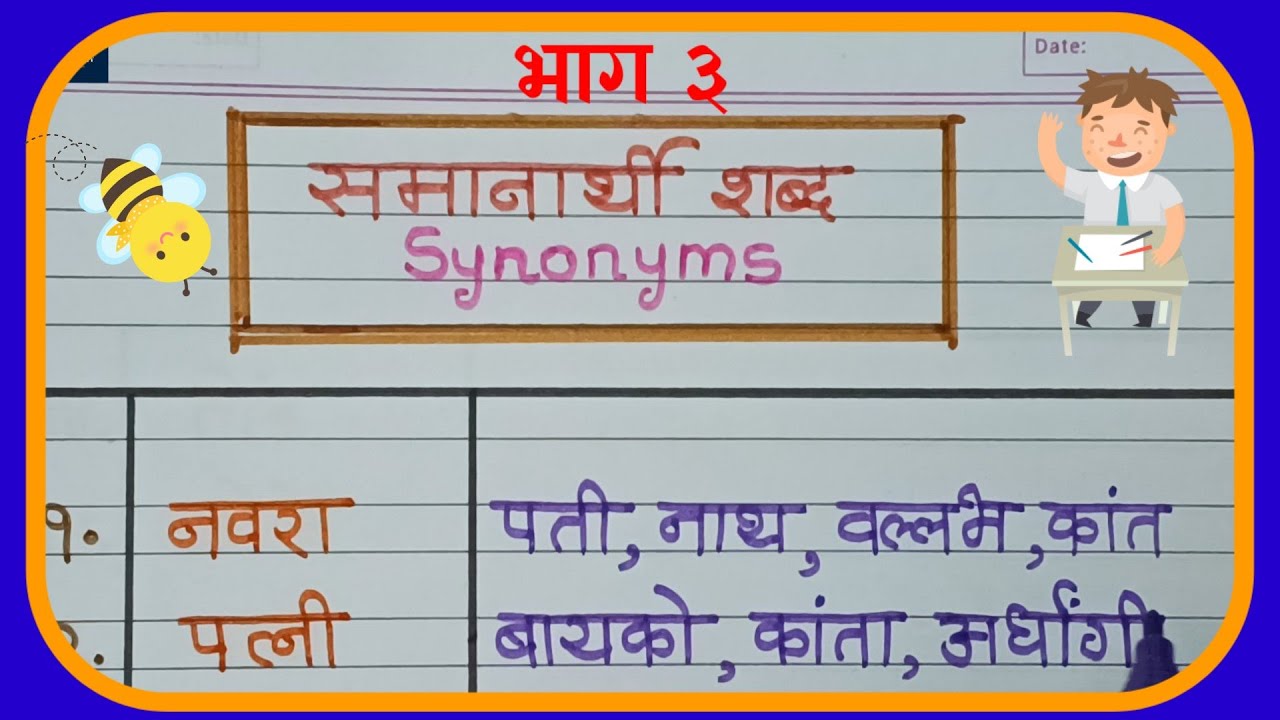 भाग ३
Date:
समानार्थी शब्द
Synonyms
१. नवरा पती, नाथ, वल्लभ, कांत
पत्नी बायको, कांता, अर्धांगी